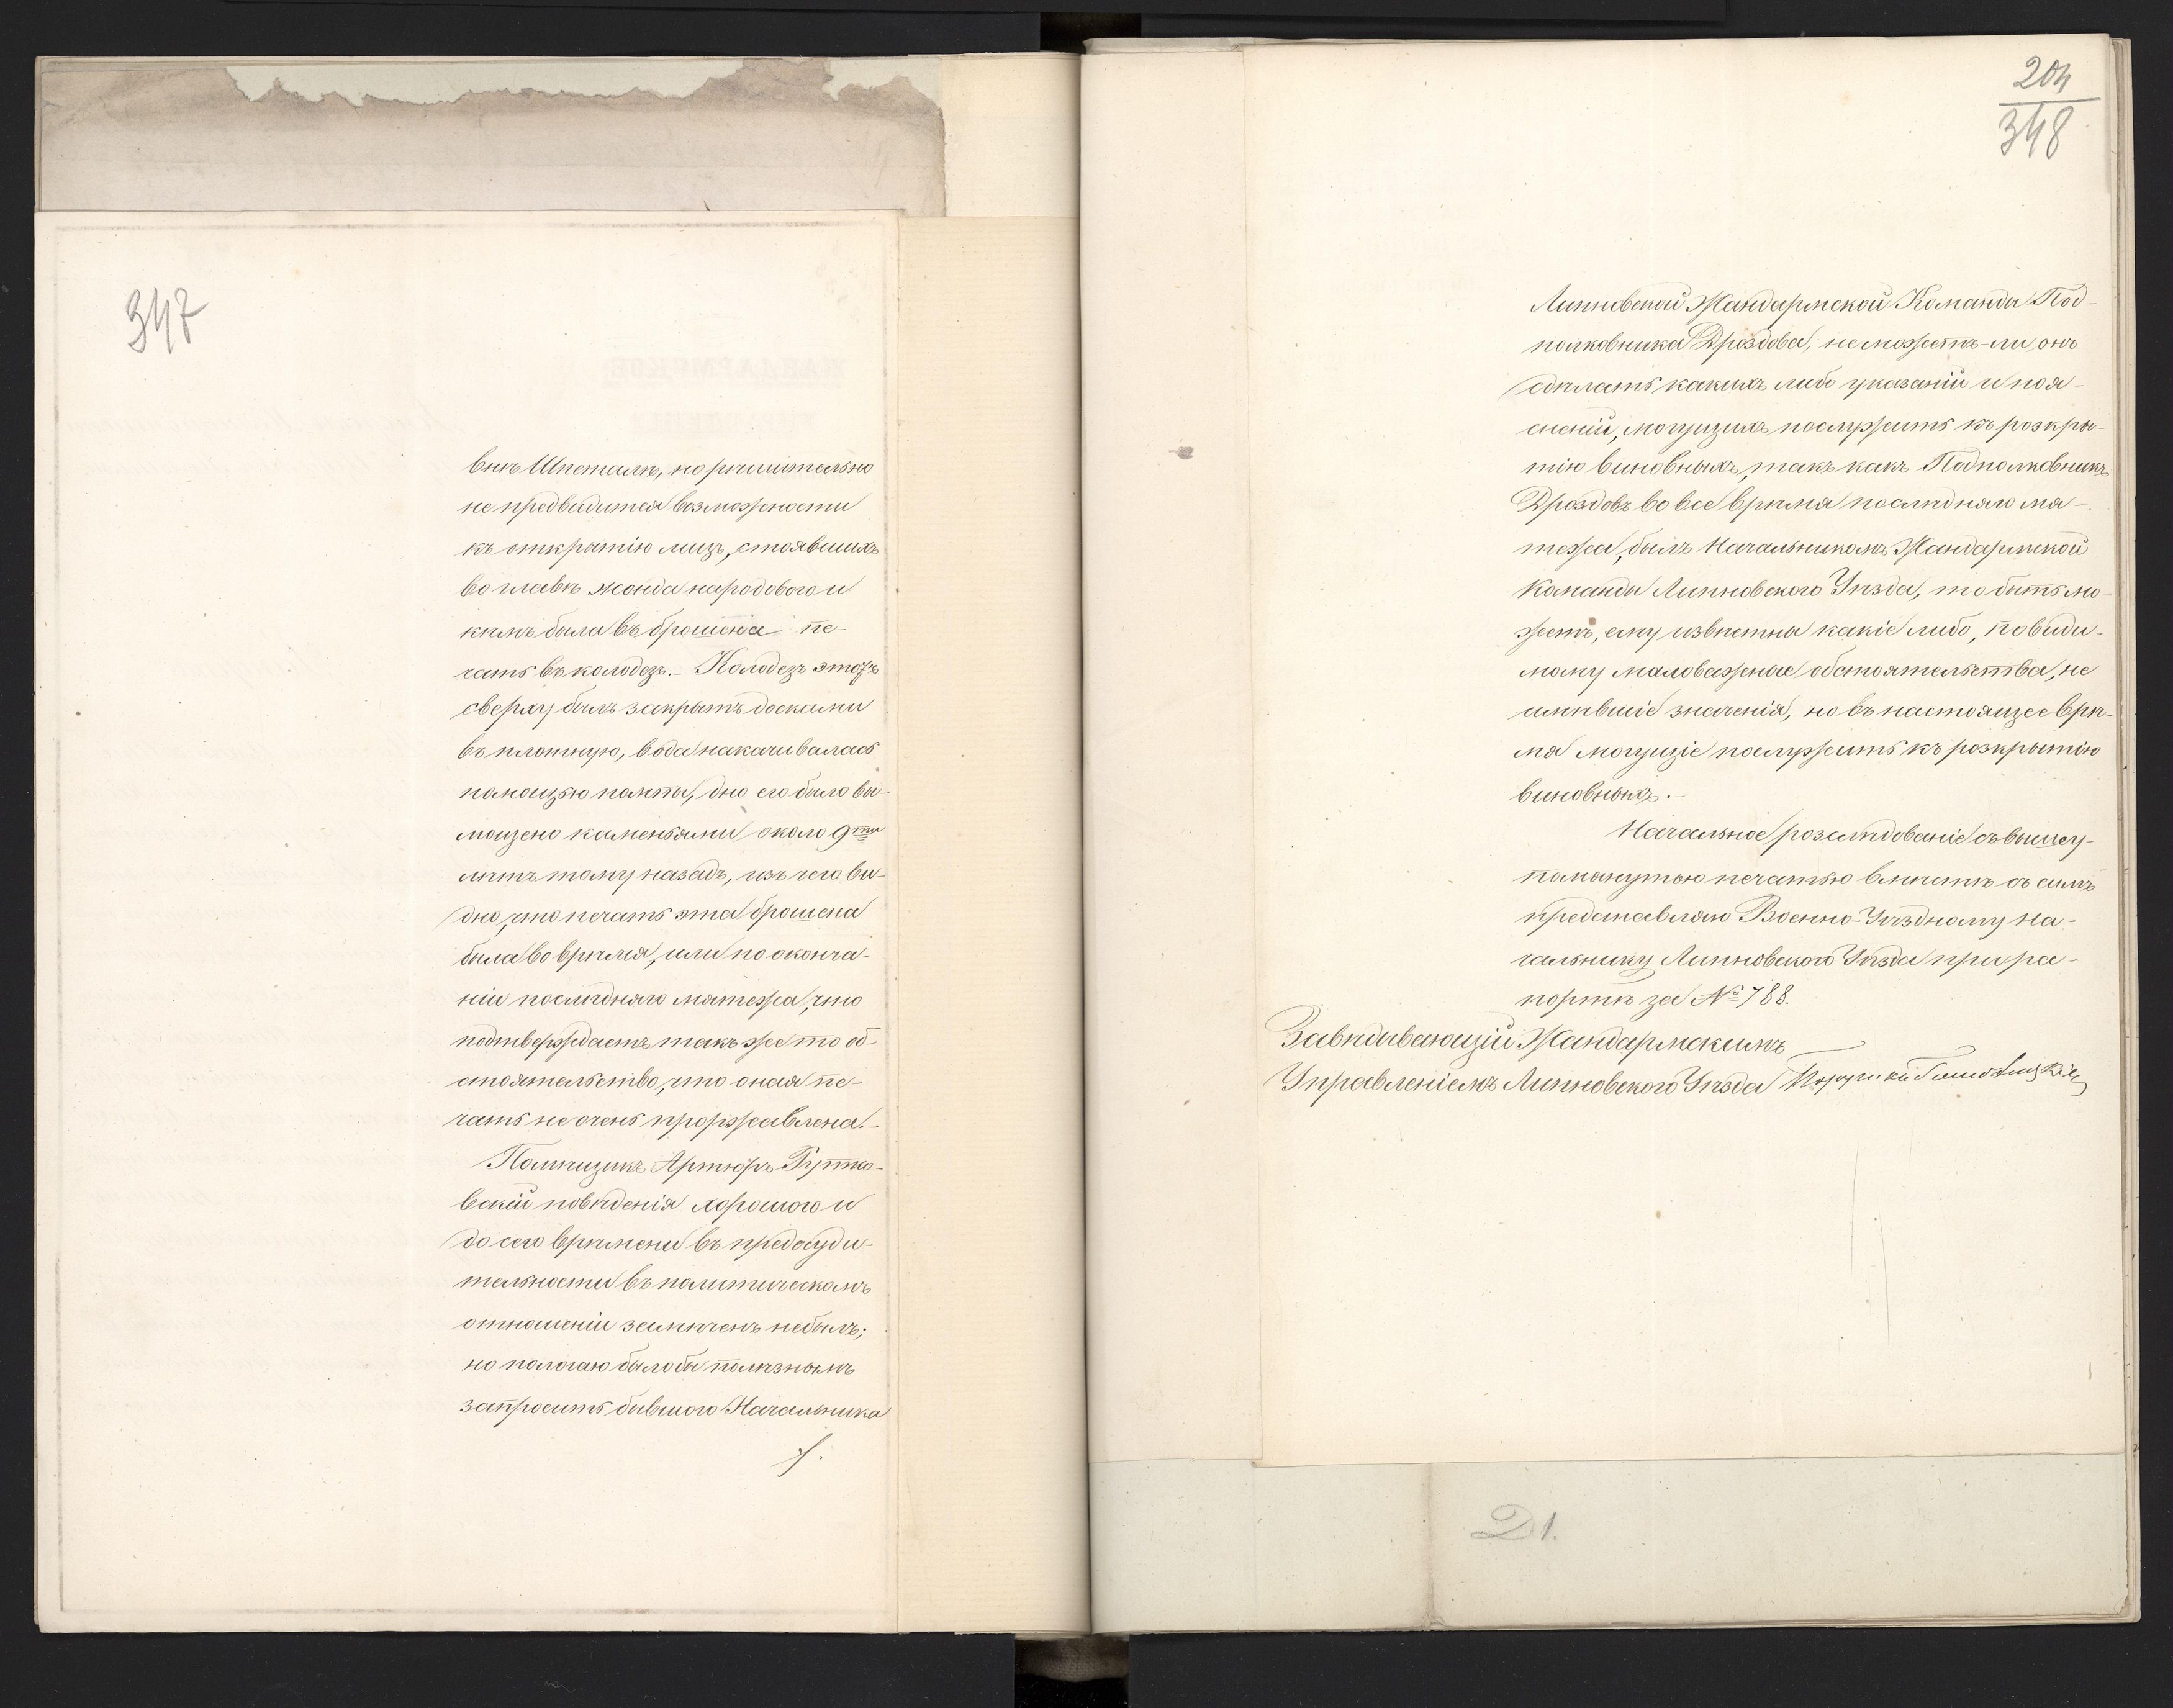 347
внѣ Шпеталѣ, но рѣшительно
не предвидится возможности
къ открытію лицъ, стоявшихъ
во главѣ жонда народового и
кѣмъ была въ брошена пе-
чать въ колодезь.- Колодезь этотъ
сверху былъ закрытъ досками
въ плотную, вода накачивалась
помощью помпы, дно его было вы-
мощено каменьями около 9ти
лѣтъ тому назадъ, изъ чего ви-
дно, что печать эта брошена
была во врѣмя, или по оконча-
ніи послѣдняго мятежа, что
подтверждаетъ такъ же то об-
стоятельство, что оная пе-
чать не очень проржавлена.-
Помѣщикъ Артюръ Рутко-
вскій повѣденія хорошого и
до сего врѣмени въ предосуди-
тельности въ политическомъ
отношеніи замѣченъ небылъ;
но пологаю было бы полѣзнымъ
запросить бывшого Начальника
204
348
Липновской Жандармской Команды Под-
полковника Дроздова, неможетъ-ли онъ
сдѣлать какихъ либо указаній и поя-
сненій, могущихъ послужить къ розкры-
тію виновныхъ, такъ какъ Подполковникъ
Дроздовъ во все врѣмя послѣдняго мя-
тежа, былъ Начальникомъ Жандармской
Команды Липновского Уѣзда, то быть мо-
жетъ, ему извѣстны какіе либо, повиди-
мому маловажные обстоятельства, не
имѣвшіе значенія, но въ настоящее врѣ-
мя могущіе послужить къ розкрытію
виновныхъ.-
Начальное розслѣдованіе съ вышеу-
помянутою печатью вмѣстѣ съ симъ
представляю Военно-Уѣздному На-
чальнику Липновского Уѣзда при ра-
портѣ за № 788.
Завѣдывающій Жандармскимъ
Управленіемъ Липновского Уѣзда Поручикъ
D1.